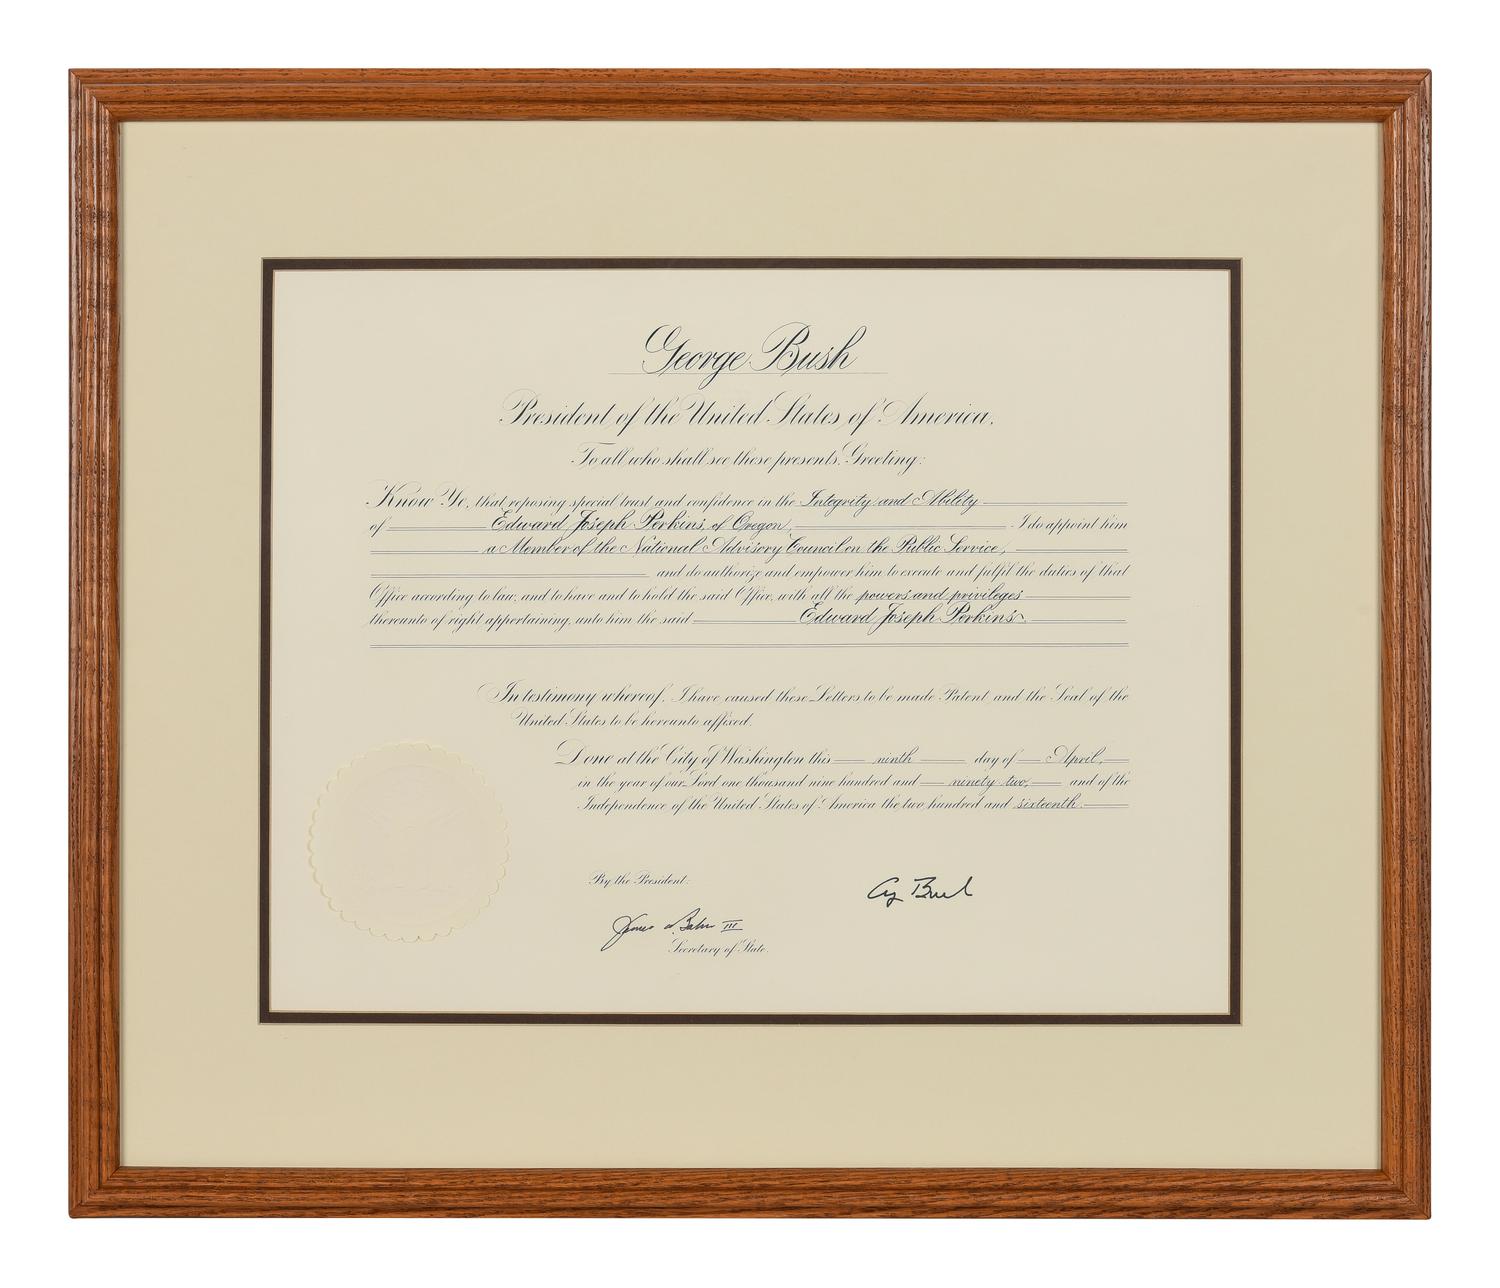 George Bush
President of the United States of America.
To all who shall see these presents, Greeting:
Know Ye, that reposing special trust and confidence in the Integrity and Ability
of Edward Joseph Perkins, of Oregon, I do appoint him
a Member of the National Advisory Council on the Public Service,
and do authorize and empower him to execute and fulfil the duties of that
Office according to law, and to have and to hold the said Office, with all the powers and privileges
thereunto of right appertaining, unto him the said Edward Joseph Perkins.
In testimony whereof, I have caused these Letters to be made Patent and the Seal of the
United States to be hereunto affixed.
Done at the City of Washington this ninth day of April,
in the year of our Lord one thousand nine hundred and ninety-two, and of the
Independence of the United States of America the two hundred and sixteenth.
By the President:
Gy Bush
James A. Baker III
Secretary of State.